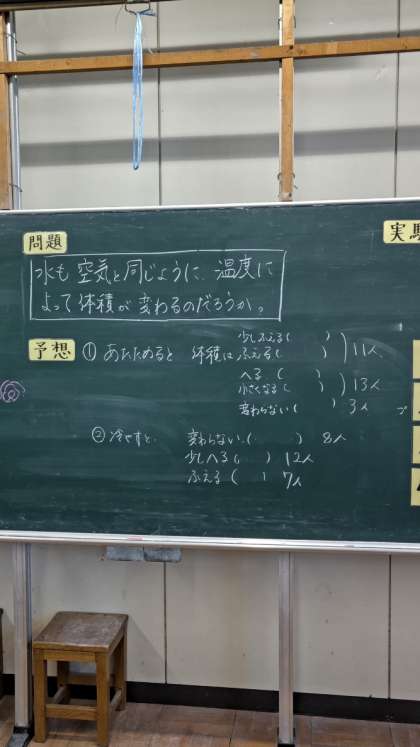 問題
水も空気と同じように、温度に
よって体積が変わるのだろうか。
実
予想 ① あたためると 体積は 少しふえる( )
ふえる( ) 11人
へる( )
小さくなる( ) 13人
変わらない( ) 3人
② 冷やすと、 変わらない( ) 8人
少しへる( ) 12人
ふえる( ) 7人